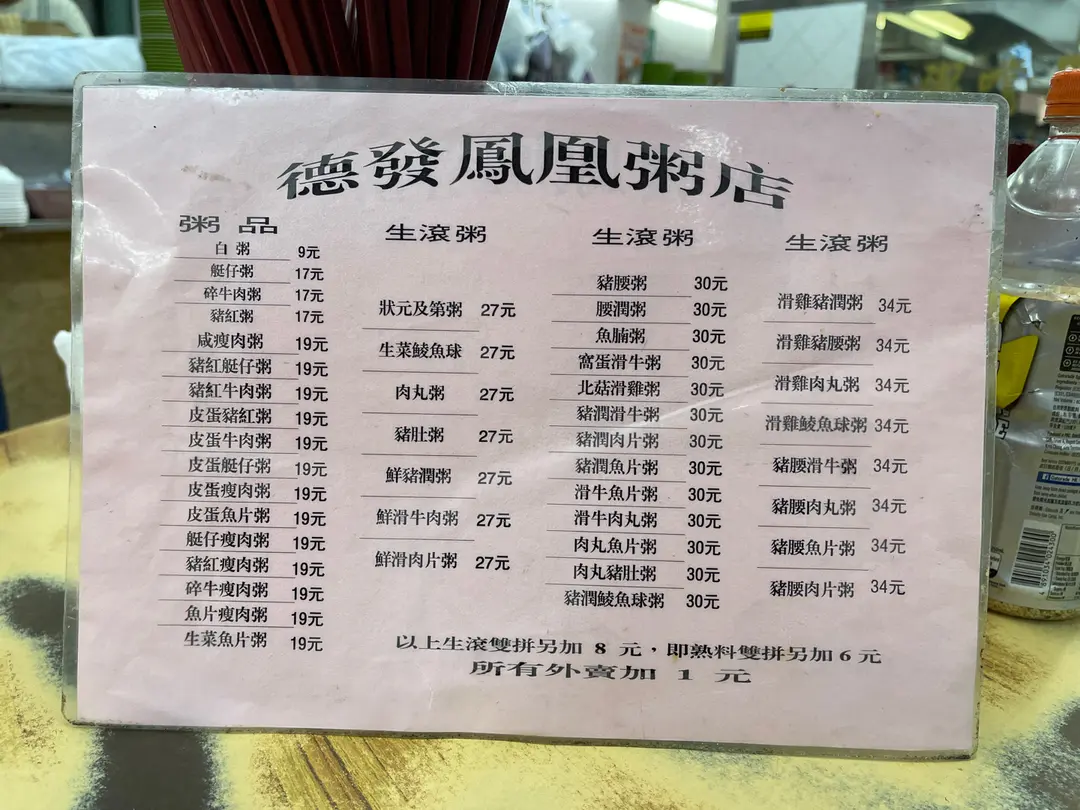 德發鳳凰粥店
粥品
白粥 9元
艇仔粥 17元
碎牛肉粥 17元
豬紅粥 17元
咸瘦肉粥 19元
豬紅艇仔粥 19元
豬紅牛肉粥 19元
皮蛋豬紅粥 19元
皮蛋牛肉粥 19元
皮蛋艇仔粥 19元
皮蛋瘦肉粥 19元
皮蛋魚片粥 19元
艇仔瘦肉粥 19元
豬紅瘦肉粥 19元
碎牛瘦肉粥 19元
魚片瘦肉粥 19元
生菜魚片粥 19元
生滾粥
狀元及第粥 27元
生菜鯪魚球 27元
肉丸粥 27元
豬肚粥 27元
鮮豬潤粥 27元
鮮滑牛肉粥 27元
鮮滑肉片粥 27元
生滾粥
豬腰粥 30元
腰潤粥 30元
魚腩粥 30元
窩蛋滑牛粥 30元
北菇滑雞粥 30元
豬潤滑牛粥 30元
豬潤肉片粥 30元
豬潤魚片粥 30元
滑牛魚片粥 30元
滑牛肉丸粥 30元
肉丸魚片粥 30元
肉丸豬肚粥 30元
豬潤鯪魚球粥 30元
生滾粥
滑雞豬潤粥 34元
滑雞豬腰粥 34元
滑雞肉丸粥 34元
滑雞鯪魚球粥 34元
豬腰滑牛粥 34元
豬腰肉丸粥 34元
豬腰魚片粥 34元
豬腰肉片粥 34元
以上生滾雙拼另加 8 元，即熟料雙拼另加 6 元
所有外賣加 1 元